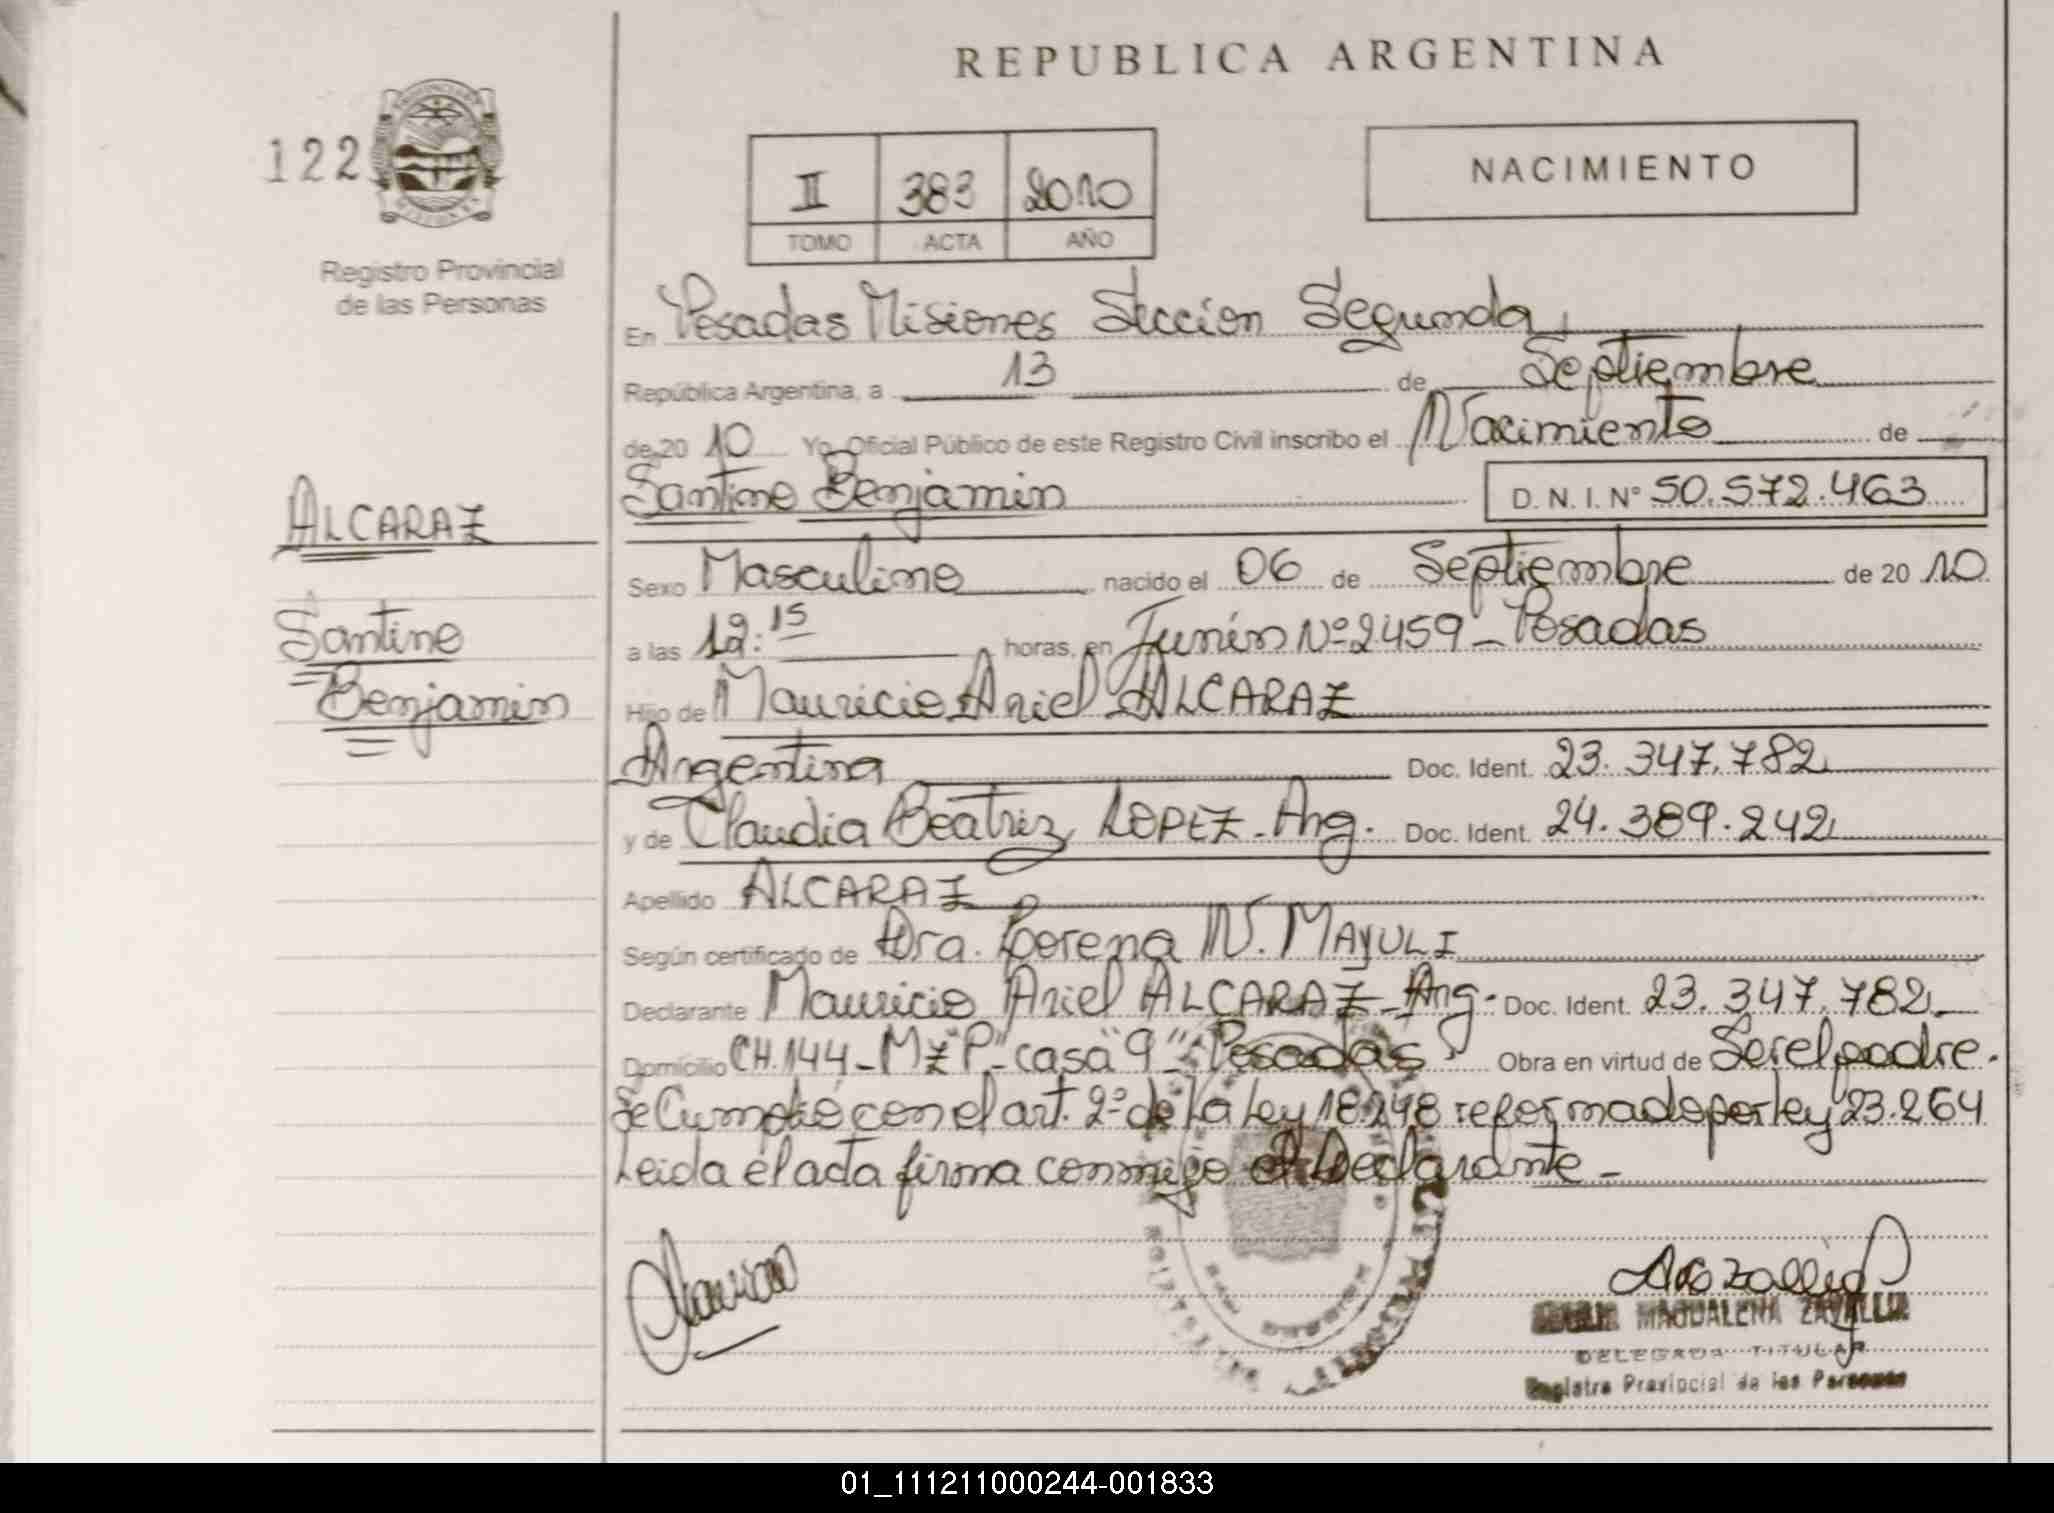 REPUBLICA ARGENTINA
122
PROVINCIA DE
MISIONES
Registro Provincial
de las Personas
II 383 2010
TOMO ACTA AÑO
NACIMIENTO
En Posadas Misiones Sección Segunda
República Argentina, a 13 de Septiembre
de 20 10 Yo, Oficial Público de este Registro Civil inscribo el Nacimiento de
Santino Benjamin D. N. I. N° 50.572.463
ALCARAZ
Santino
Benjamin
Sexo Masculino nacido el 06 de Septiembre de 20 10
a las 12:15 horas, en Junín Nº 2459 - Posadas
Hijo de Mauricio Ariel ALCARAZ
Argentina Doc. Ident. 23.347.782
y de Claudia Beatriz LOPEZ - Arg. Doc. Ident. 24.389.242
Apellido ALCARAZ
Según certificado de Dra. Lorena N. MAYULI
Declarante Mauricio Ariel ALCARAZ - Arg. Doc. Ident. 23.347.782
Domicilio CH. 144 - Mz "P" - casa "9" - Posadas Obra en virtud de Ser el padre.
Se Cumplió con el art. 2º de la Ley 18.248 reformado por ley 23.264
Leida el acta firma conmigo el Declarante -
MAGDALENA ZAVALLIA
DELEGADA TITULAR
Registro Provincial de las Personas
01_111211000244-001833